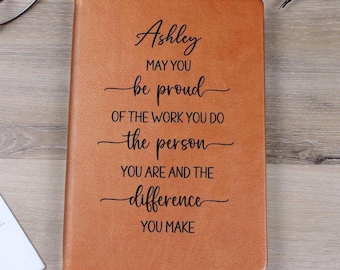 Ashley
MAY YOU
be proud
OF THE WORK YOU DO
the person
YOU ARE AND THE
difference
YOU MAKE